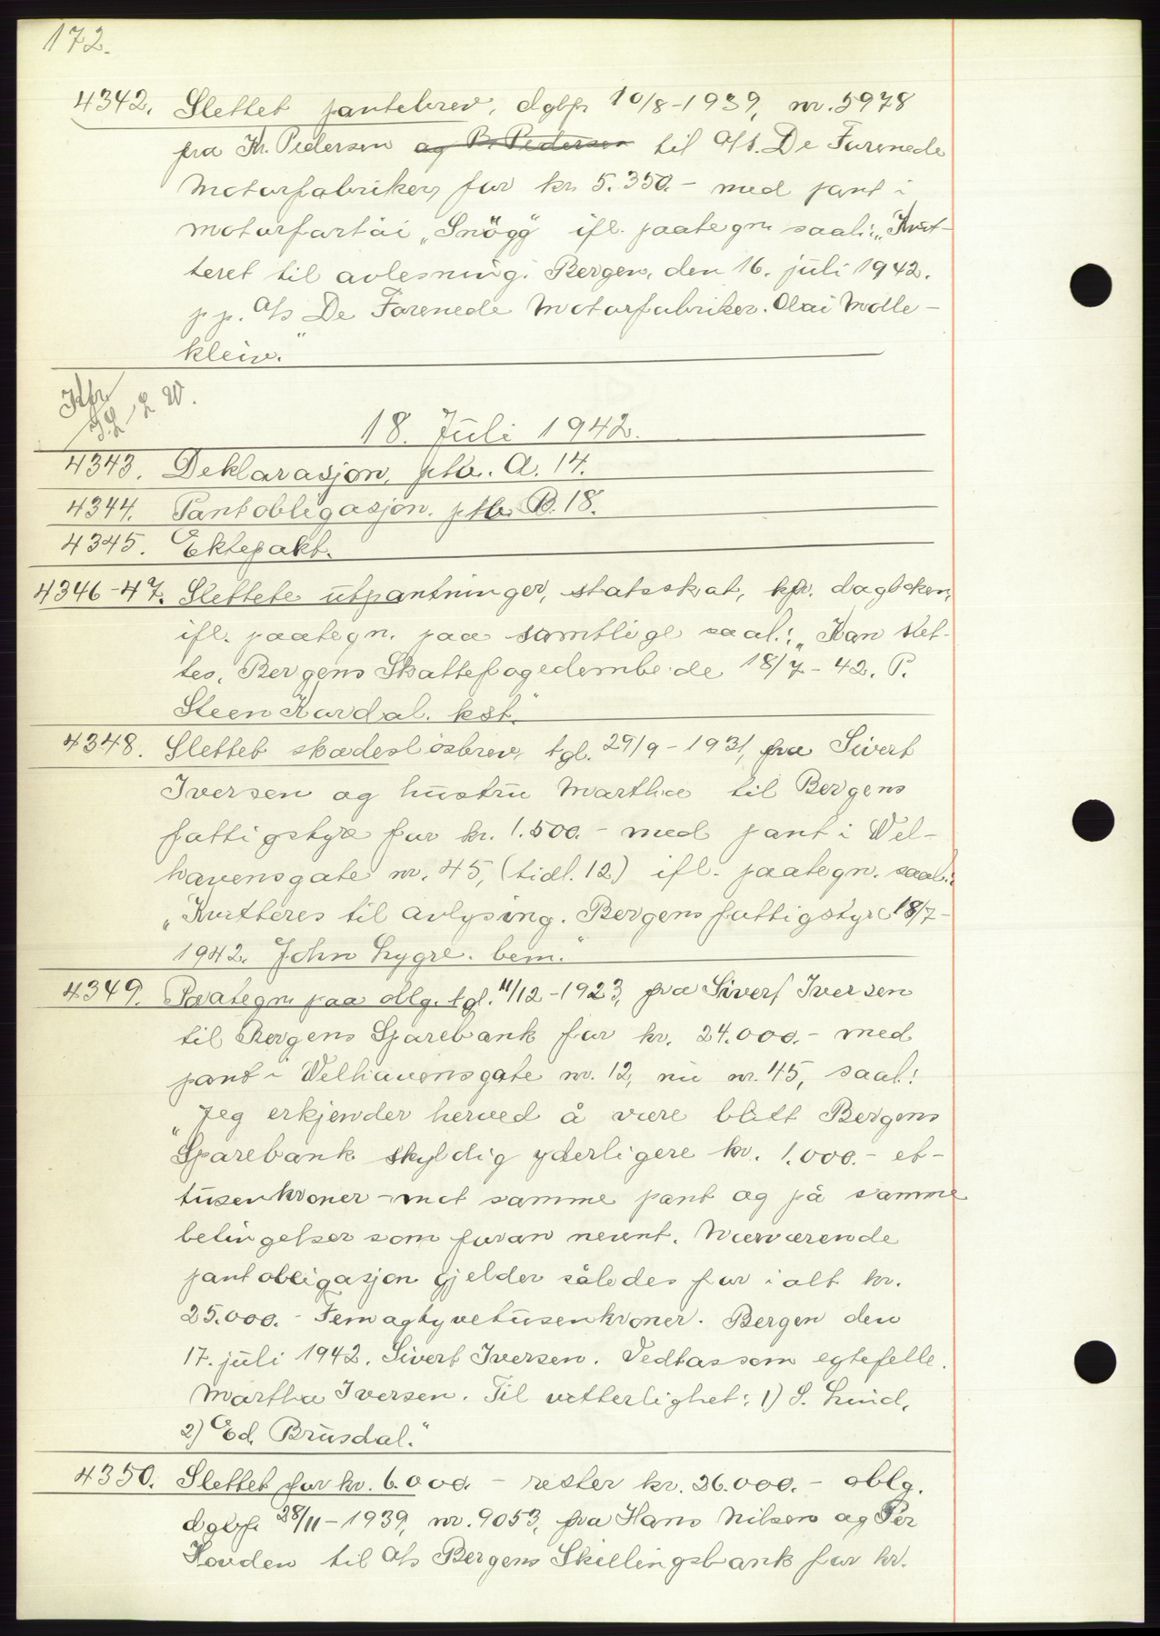 172.
4342. Slettet pantebrev, dgbf. 10/8-1939, nr. 5978
fra Kr. Pedersen og B. Pedersen til A/S. De Forenede
Motorfabriker, for kr. 5.350.- med pant i
motorfartöi „Snögg" ifl. paategn. saal.: „Kvit-
teret til avlesning. Bergen, den 16. juli 1942.
p.p. A/S De Forenede Motorfabriker. Olai Molle-
kleiv."
18. Juli 1942.
4343. Deklarasjon, ptb. A. 14.
4344. Pantobligasjon. ptb. B. 18.
4345. Ektepakt.
4346-47. Slettete utpantninger, statsskat, kfr. dagboken,
ifl. paategn. paa samtlige saal.: „Kan slet-
tes, Bergens Skattefogedembede 18/7-42. P.
Steen Kardal. kst."
4348. Slettet skadeslösbrev, tgl. 29/9-1931, fra Sivert
Iversen og hustru Martha til Bergens
fattigstyre for kr. 1.500.- med pant i Wel-
havensgate nr. 45, (tidl. 12) ifl. paategn. saal.:
„Kvitteres til avlysing. Bergens fattigstyre 18/7-
1942. John Lygre. bem."
4349. Paategn. paa oblg. tgl. 11/12-1923, fra Sivert Iversen
til Bergens Sparebank for kr. 24.000.- med
pant i Welhavensgate nr. 12, nu nr. 45, saal.:
„Jeg erkjender herved å være blitt Bergens
Sparebank skyldig yderligere kr. 1.000.- et-
tusenkroner - mot samme pant og på samme
betingelser som foran nevnt. Nærværende
pantobligasjon gjelder således for ialt kr.
25.000.- Femogtyvetusenkroner. Bergen den
17. juli 1942. Sivert Iversen. Vedtas som egtefelle.
Martha Iversen. Til vitterlighet: 1) S. Lund,
2) Ed. Brusdal."
4350. Slettet for kr. 6.000.- rester kr. 26.000.- oblg.
dgbf. 28/11-1939, nr. 9053, fra Hans Nilsen og Per
Hovden til A/S Bergens Skillingsbank for kr.